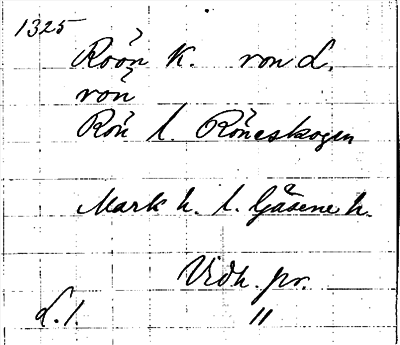 1325
Roon K. ron L.
ron
Ron l. Roneskogen
Mark h. l. Gäsene h.
Vidh. pr.
L. 1. 11